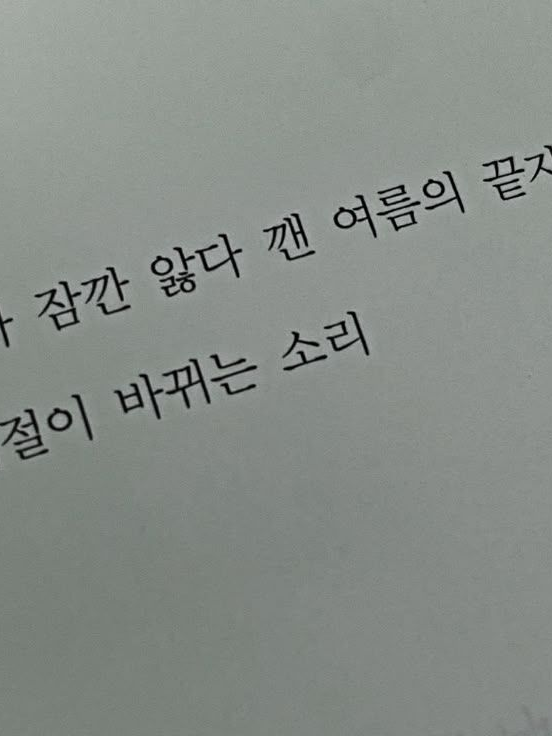 잠깐 앓다 깬 여름의
바뀌는 소리